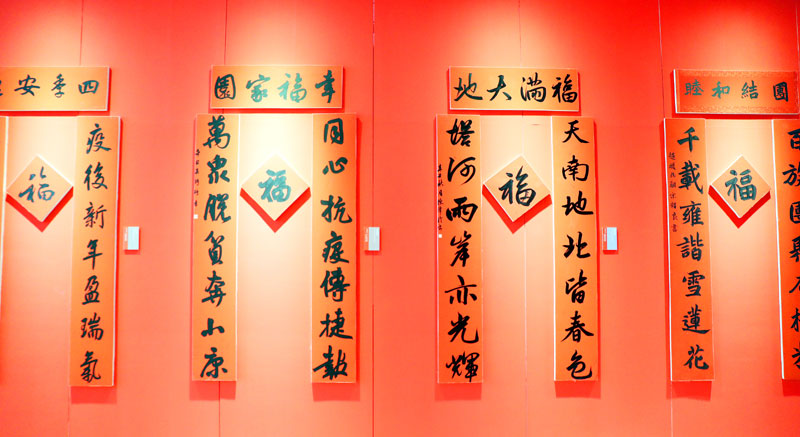 四季安
福
疫後新年盈瑞氣
幸福家園
福
同心抗疫傳捷報
萬眾脫貧奔小康
福滿大地
福
天南地北皆春色
塔河兩岸亦光輝
團結和睦
福
百族團
千載雍諧雪蓮花